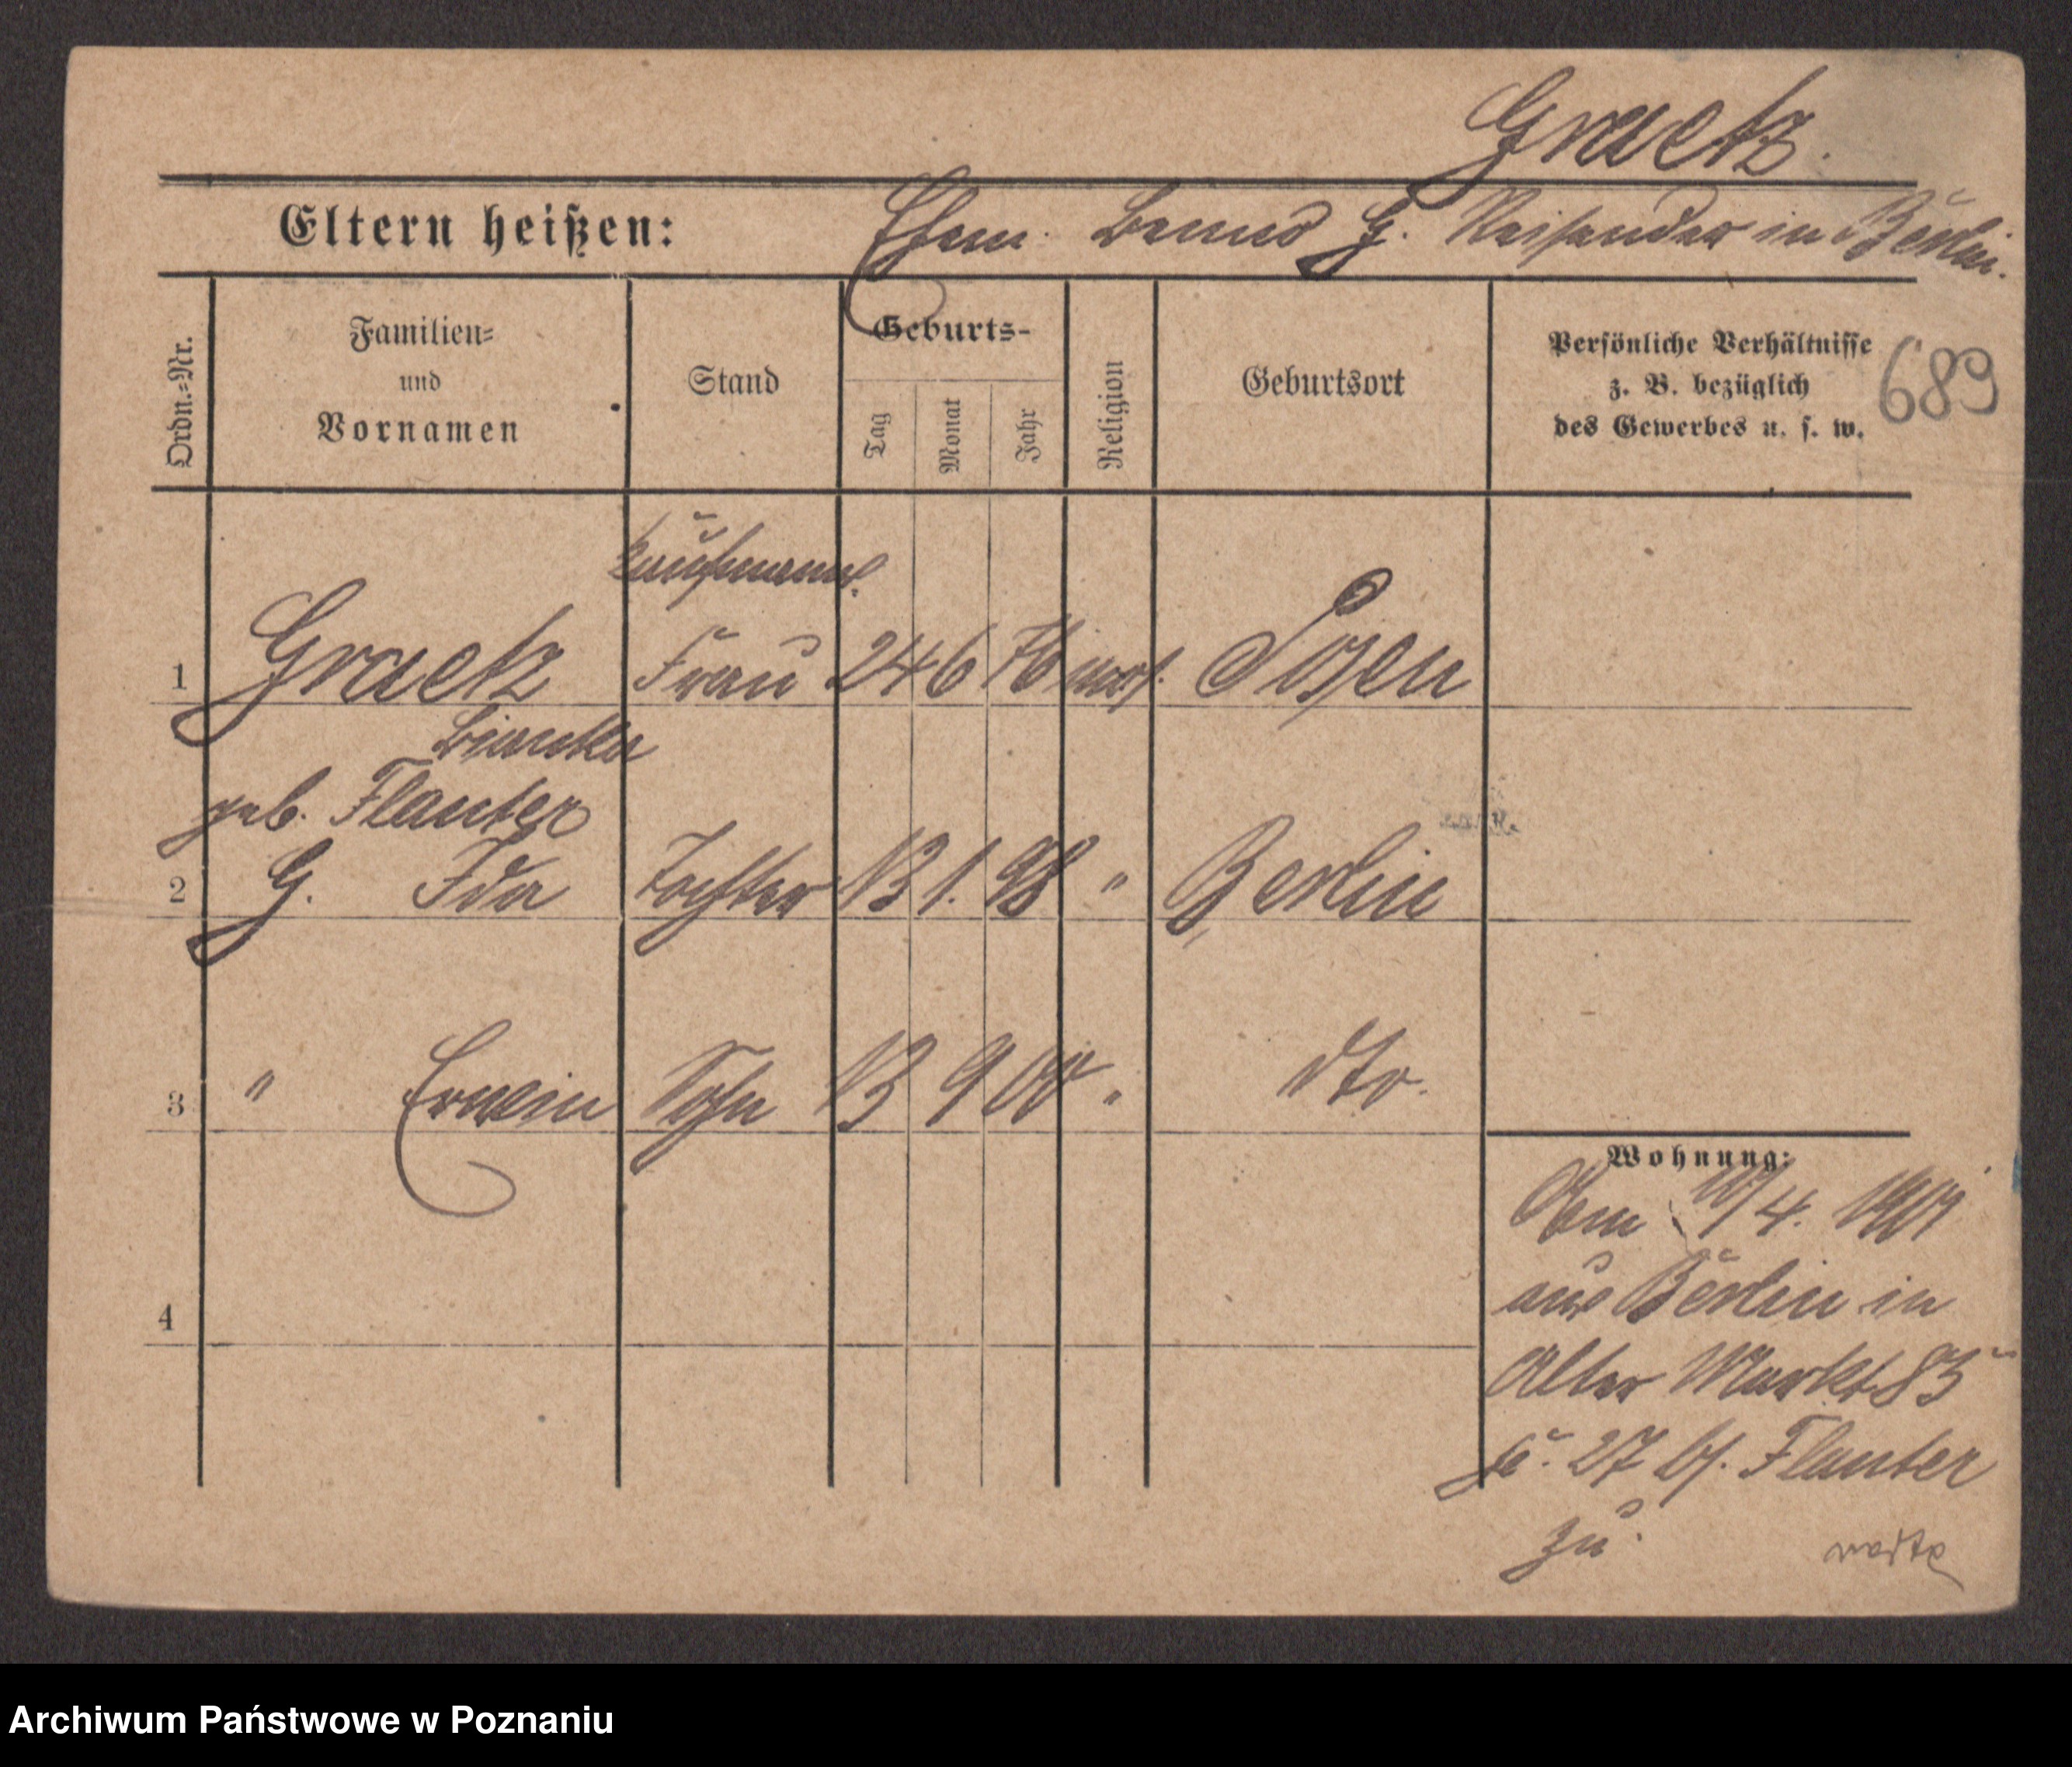 Graetz.
Eltern heißen: Ehem. Benno G. Reisender in Berlin.
Ordn.-Nr.
Familien- und Vornamen
Stand
Geburts-
Tag Monat Jahr
Religion
Geburtsort
Persönliche Verhältnisse
z. B. bezüglich
des Gewerbes u. s. w.
689
Kaufmann
1 Graetz Frau 24 6 76 mos. Posen
Bianka
geb. Flanter
2 G. Ida Tochter 13 1. 98 " Berlin
3 " Erwein Sohn 13 9 00 " dto.
4
Wohnung:
Am /4. 1901
aus Berlin in
Alter Markt 85
u. 27 bei Flanter
zu.
Archiwum Państwowe w Poznaniu